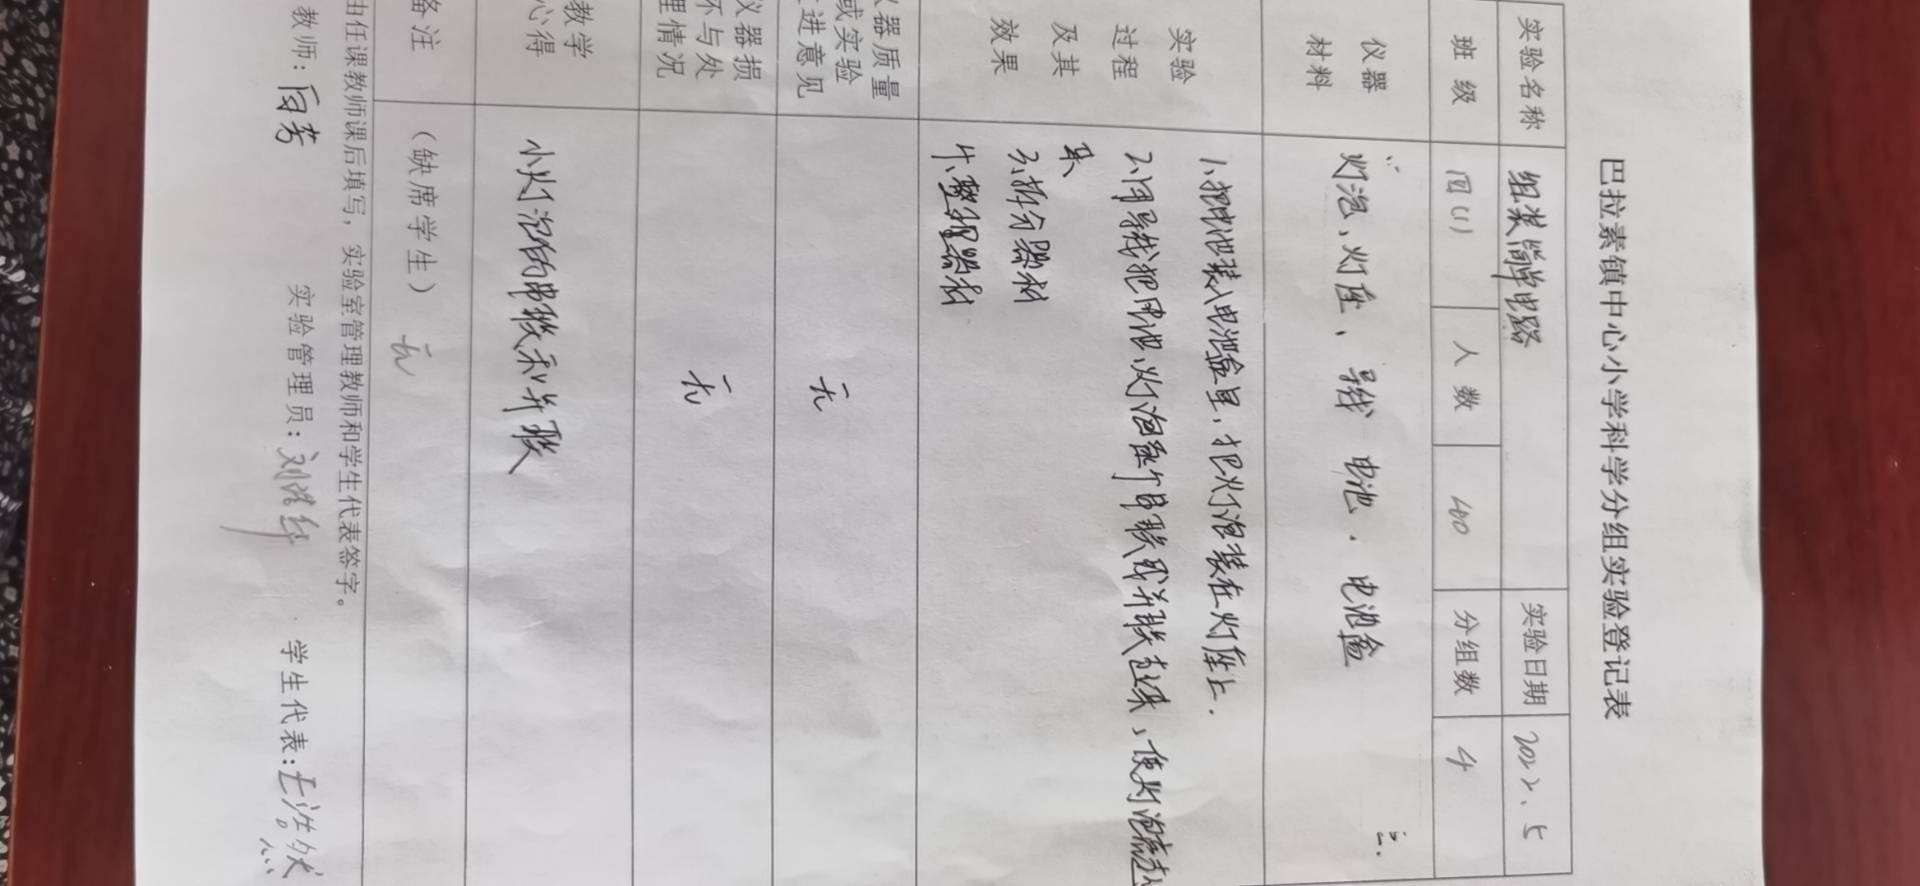 巴拉素镇中心小学科学分组实验登记表
实验名称 组装简单电路 实验日期 2022.5
班级 四(1) 人数 40 分组数 4
仪器材料 灯泡、灯座、导线 电池.电池盒
实验过程及其效果
1、把电池装入电池盒里,把灯泡装在灯座上.
2、用导线把电池、灯泡逐个串联或并联起来,使灯泡亮起
来
3、拆分器材
4、整理器材
器质量
或实验
进意见 无
仪器损
坏与处
理情况 无
教学
心得 小灯泡的串联和并联
备注 (缺席学生) 无
由任课教师课后填写,实验室管理教师和学生代表签字。
教师: 实验管理员: 学生代表: